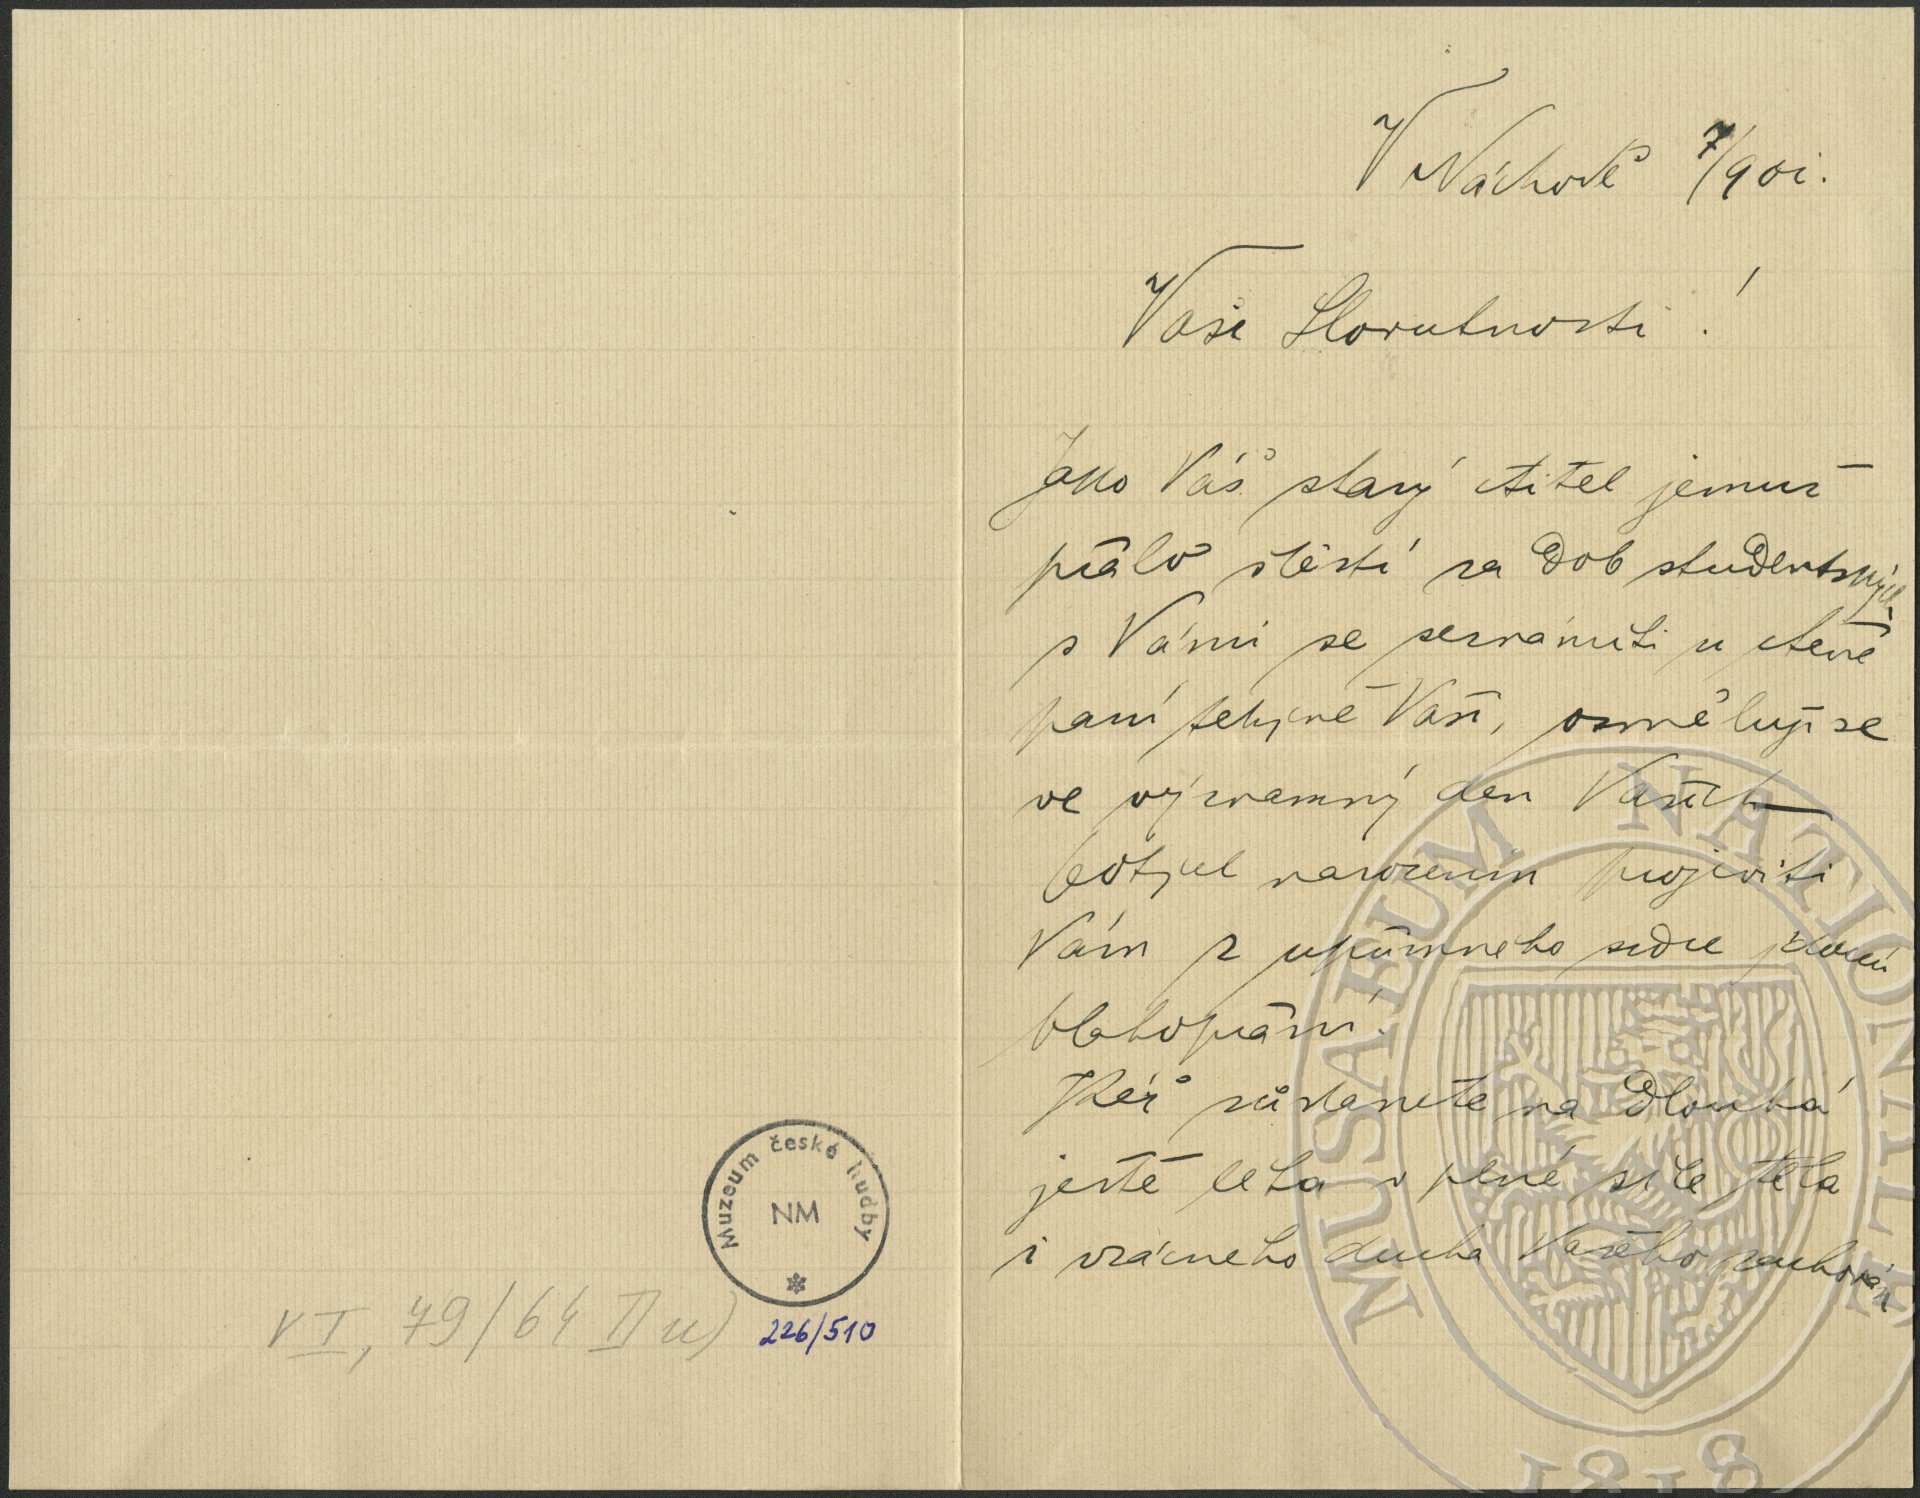 Muzeum české hudby
NM
VI, 79/64 II u)
226/510
V Náchodě 7/901.
Vaše Slovutnosti!
Jako Váš starý ctitel jemuž
přálo štěstí za dob studentských
s Vámi se seznámiti u ctěné
paní tchyně Vaší, osměluji se
ve významný den Vašich
narozenin projeviti
Vám z upřímného srdce
blahopřání.
Kéž zůstanete na dlouhá
ještě léta v plné síle těla
i vzácného ducha Vašeho zachován
MUSAEUM NATIONALE
1818